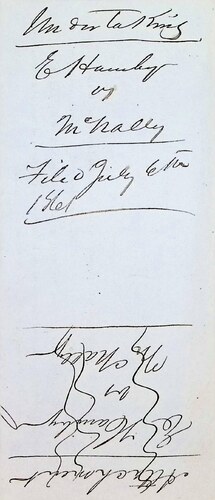 Undertaking
E Hamby
vs
McNally
Filed July 6th
1861
Attachment
E Hamby
vs
McNally